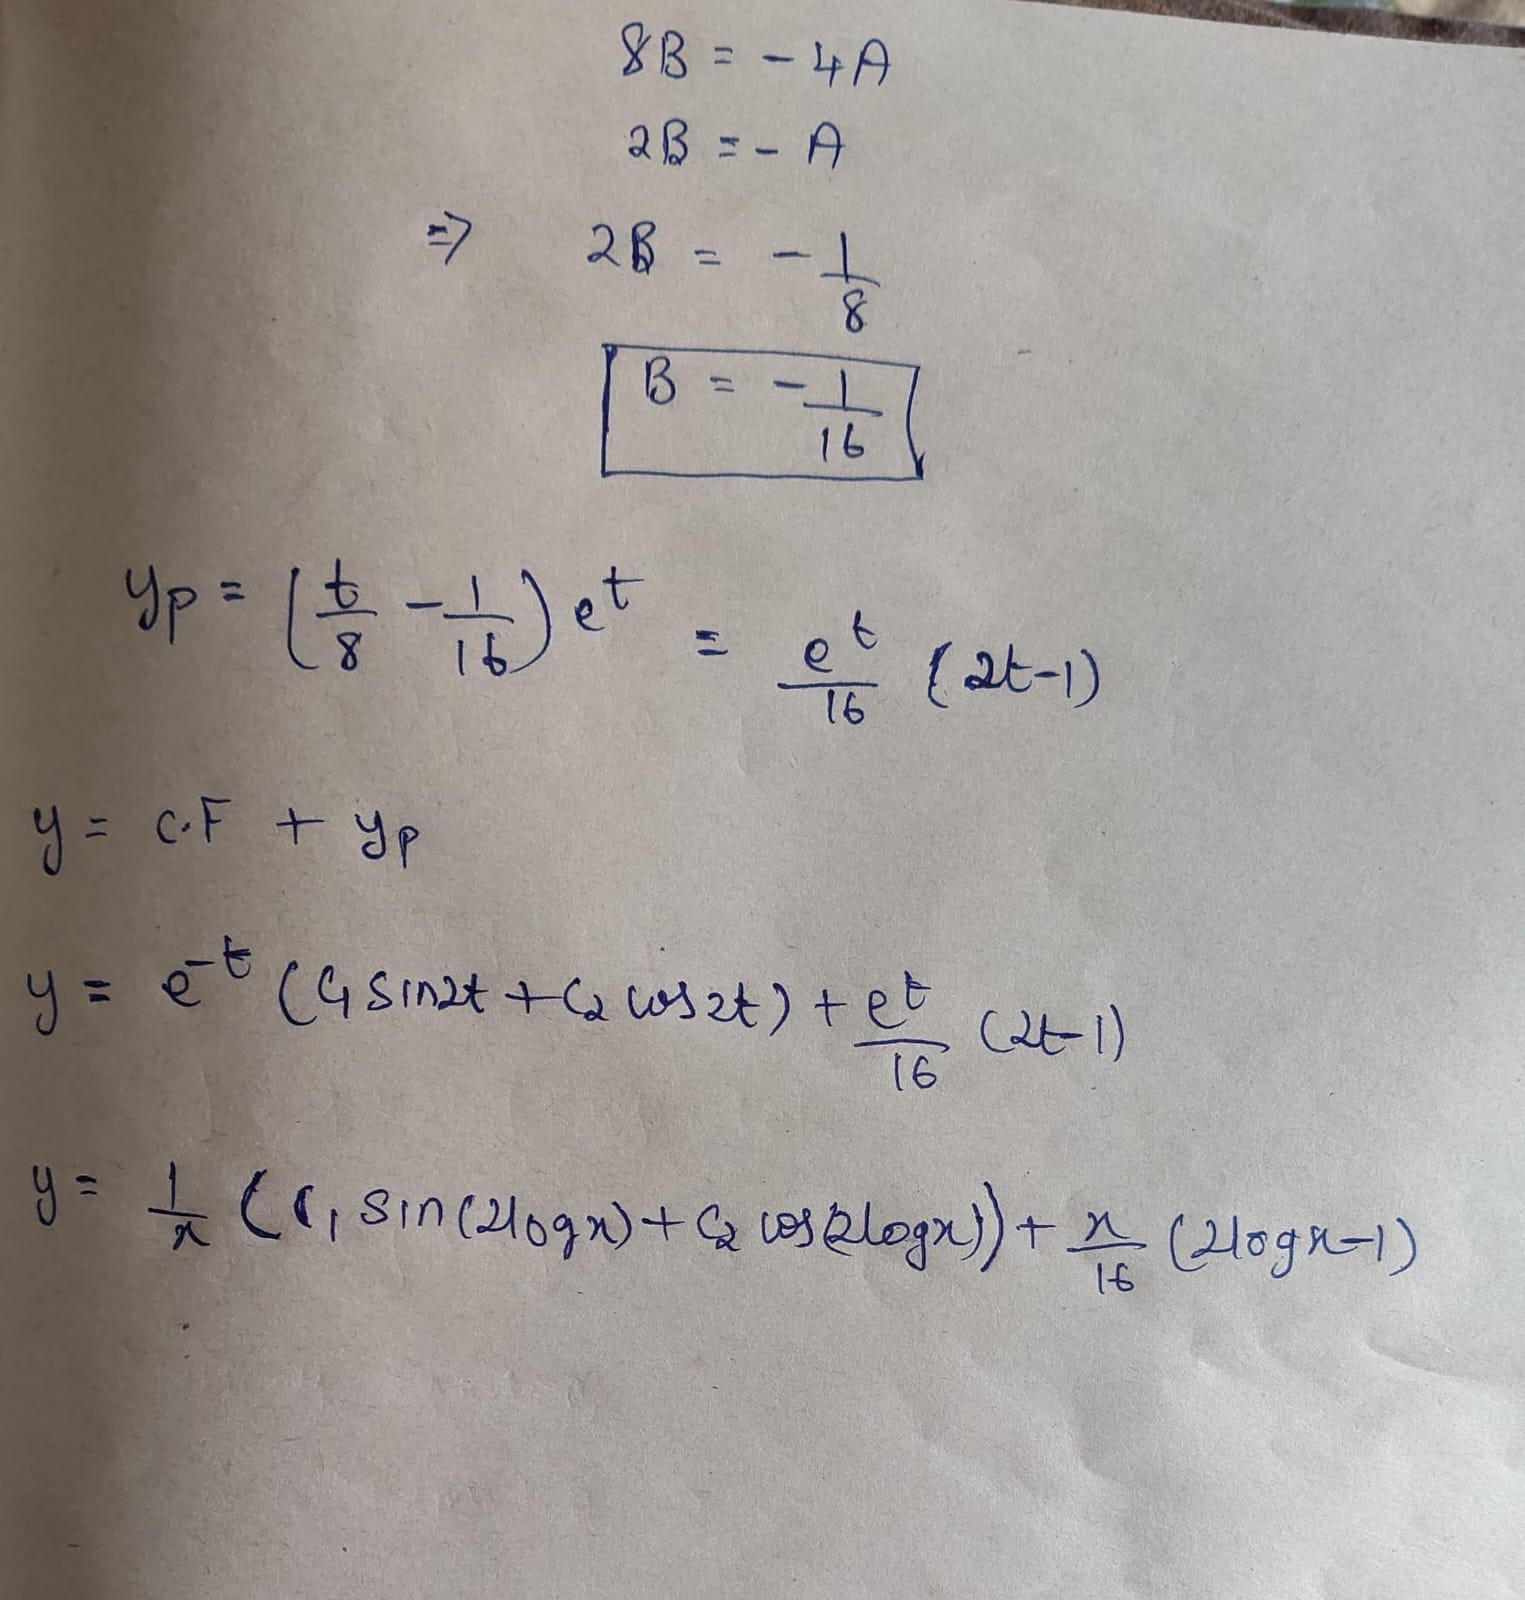 8B = - 4A
2B = - A
⇒ 2B = - 1/8
B = - 1/16
yp = (t/8 - 1/16) e^t = e^t/16 (2t-1)
y = C.F + yp
y = e^-t (C1 sin2t + C2 cos2t) + e^t/16 (2t-1)
y = 1/x (C1 sin(2logx) + C2 cos(2logx)) + x/16 (2logx-1)